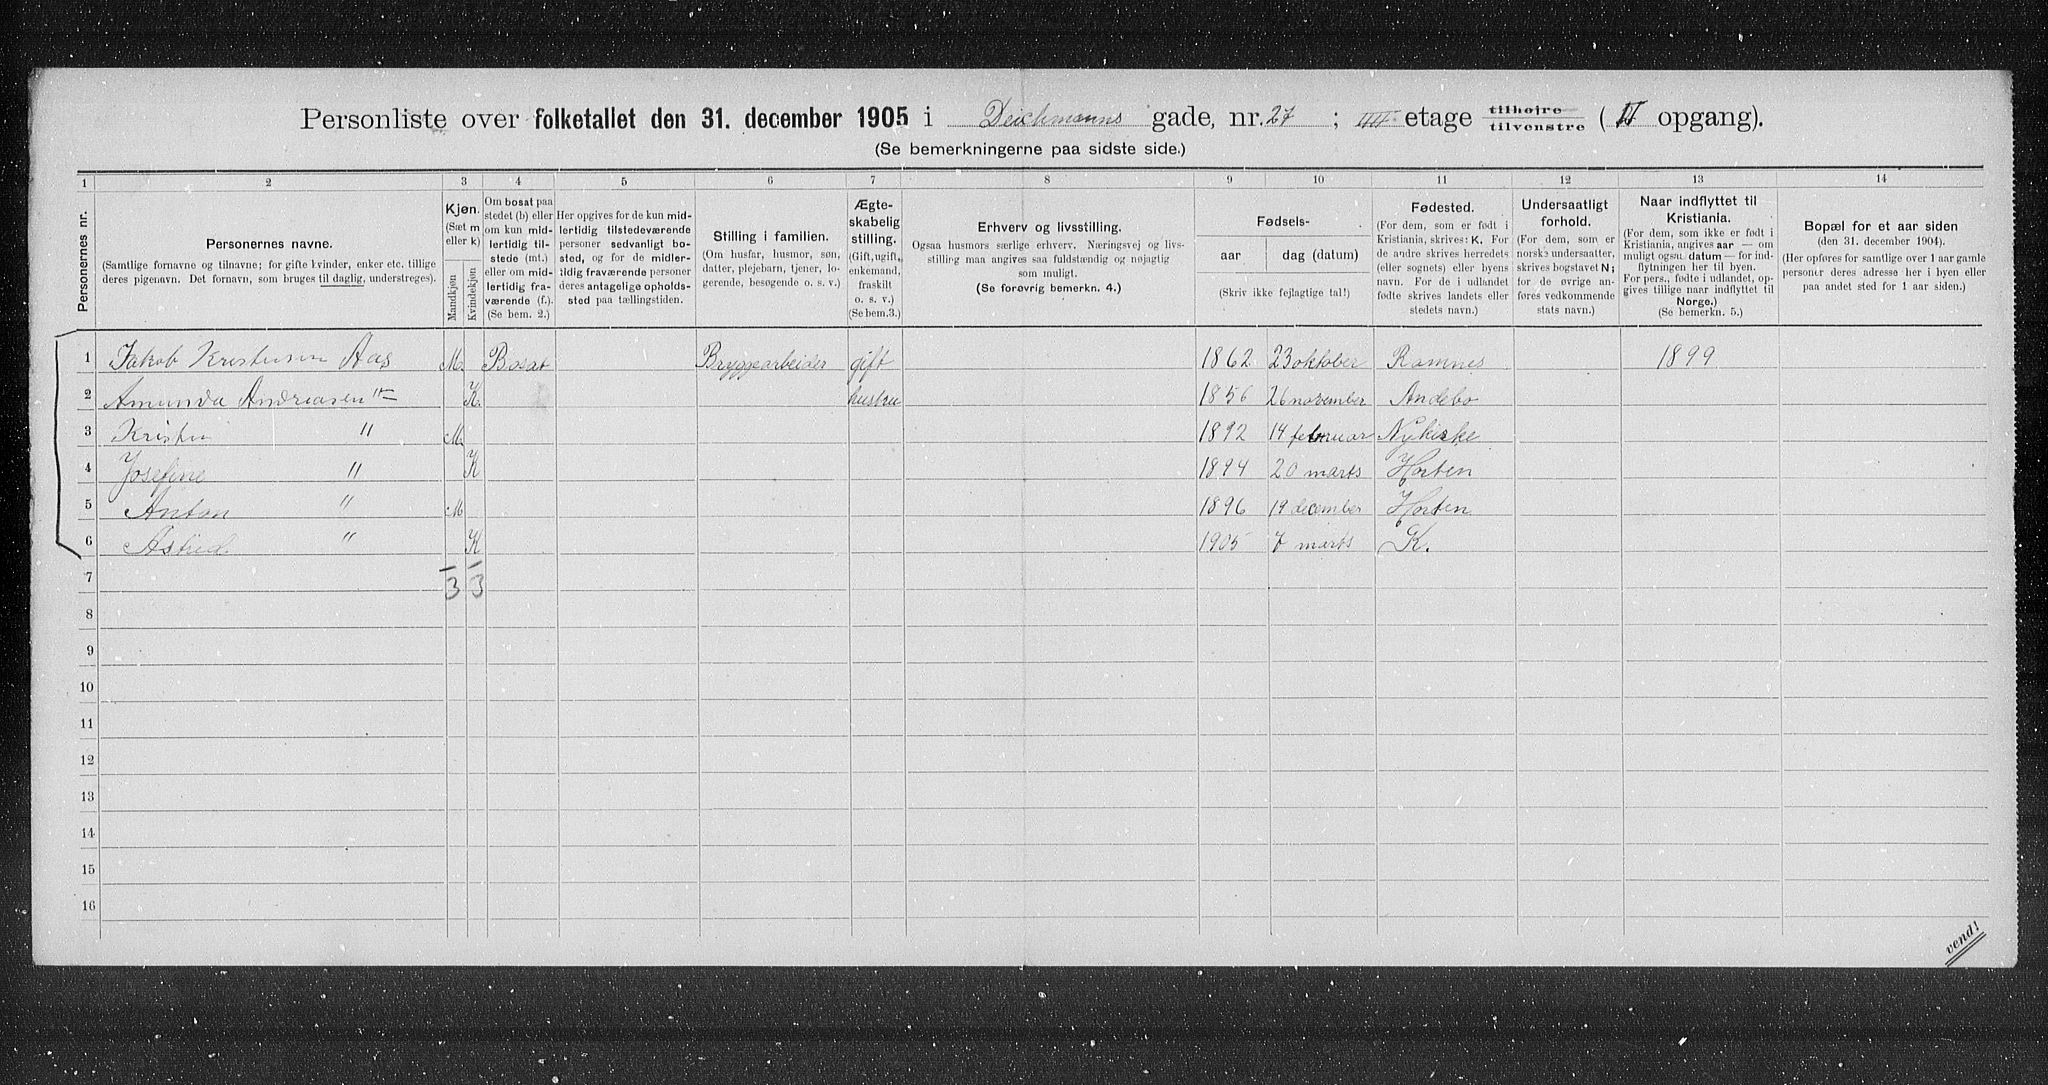 Personliste over folketallet den 31. december 1905 i Deichmanns gade, nr. 27 ; IIII etage tilhøjre tilvenstre ( II opgang).
(Se bemerkningerne paa sidste side.)
1 2 3 4 5 6 7 8 9 10 11 12 13 14
Personernes nr.
Personernes navne.
(Samtlige fornavne og tilnavne; for gifte kvinder, enker etc. tillige
deres pigenavn. Det fornavn, som bruges til daglig, understreges).
Kjøn.
(Sæt m
eller k)
Mandkjøn
Kvindekjøn
Om bosat paa
stedet (b) eller
om kun mid-
lertidig til-
stede (mt.)
eller om mid-
lertidig fra-
værende (f.).
(Se bem. 2.)
Her opgives for de kun mid-
lertidig tilstedeværende
personer sedvanlig bo-
sted, og for de midler-
tidig fraværende personer
deres antagelige opholds-
sted paa tællingstiden.
Stilling i familien.
(Om husfar, husmor, søn,
datter, plejebarn, tjener, lo-
gerende, besøgende o. s. v.)
Ægte-
skabelig
stilling.
(Gift, ugift,
enkemand,
fraskilt
o. s. v.)
(Se bem.3.)
Erhverv og livsstilling.
Ogsaa husmors særlige erhverv. Næringsvej og livs-
stilling maa angives saa fuldstændig og nøjagtig
som muligt.
(Se forøvrig bemerkn. 4.)
Fødsels-
aar
dag (datum)
(Skriv ikke fejlagtige tal!)
Fødested.
(For dem, som er født i
Kristiania, skrives: K. For
de andre skrives herredets
(eller sognets) eller byens
navn. For de i udlandet
fødte skrives landets eller
stedets navn.)
Undersaatligt
forhold.
(For dem, som er
norske undersaatter,
skrives bogstavet N;
for de øvrige an-
føres vedkommende
stats navn.)
Naar indflyttet til
Kristiania.
(For dem, som ikke er født i
Kristiania, angives aar — om
muligt ogsaa datum — for ind-
flytningen her til byen.
For pers., fødte i udlandet, op-
gives tillige naar indflyttet til
Norge.)
(Se bemerkn. 5.)
Bopæl for et aar siden
(den 31. december 1904).
(Her opføres for samtlige over 1 aar gamle
personer deres adresse her i byen eller
paa andet sted for 1 aar siden.)
1 Jakob Kristensen Aas M. Bosat Bryggearbeider gift 1862 23 oktober Ramnes 1899
2 Amunda Andreasen " K. hustru 1856 26 november Andebo
3 Kristen " M. 1892 14 februar Nykirke
4 Josefine " K 1894 20 marts Horten
5 Anton " M 1896 19 december Horten
6 Astrid " K 1905 7 marts K.
7 3 3
8
9
10
11
12
13
14
15
16
vend!